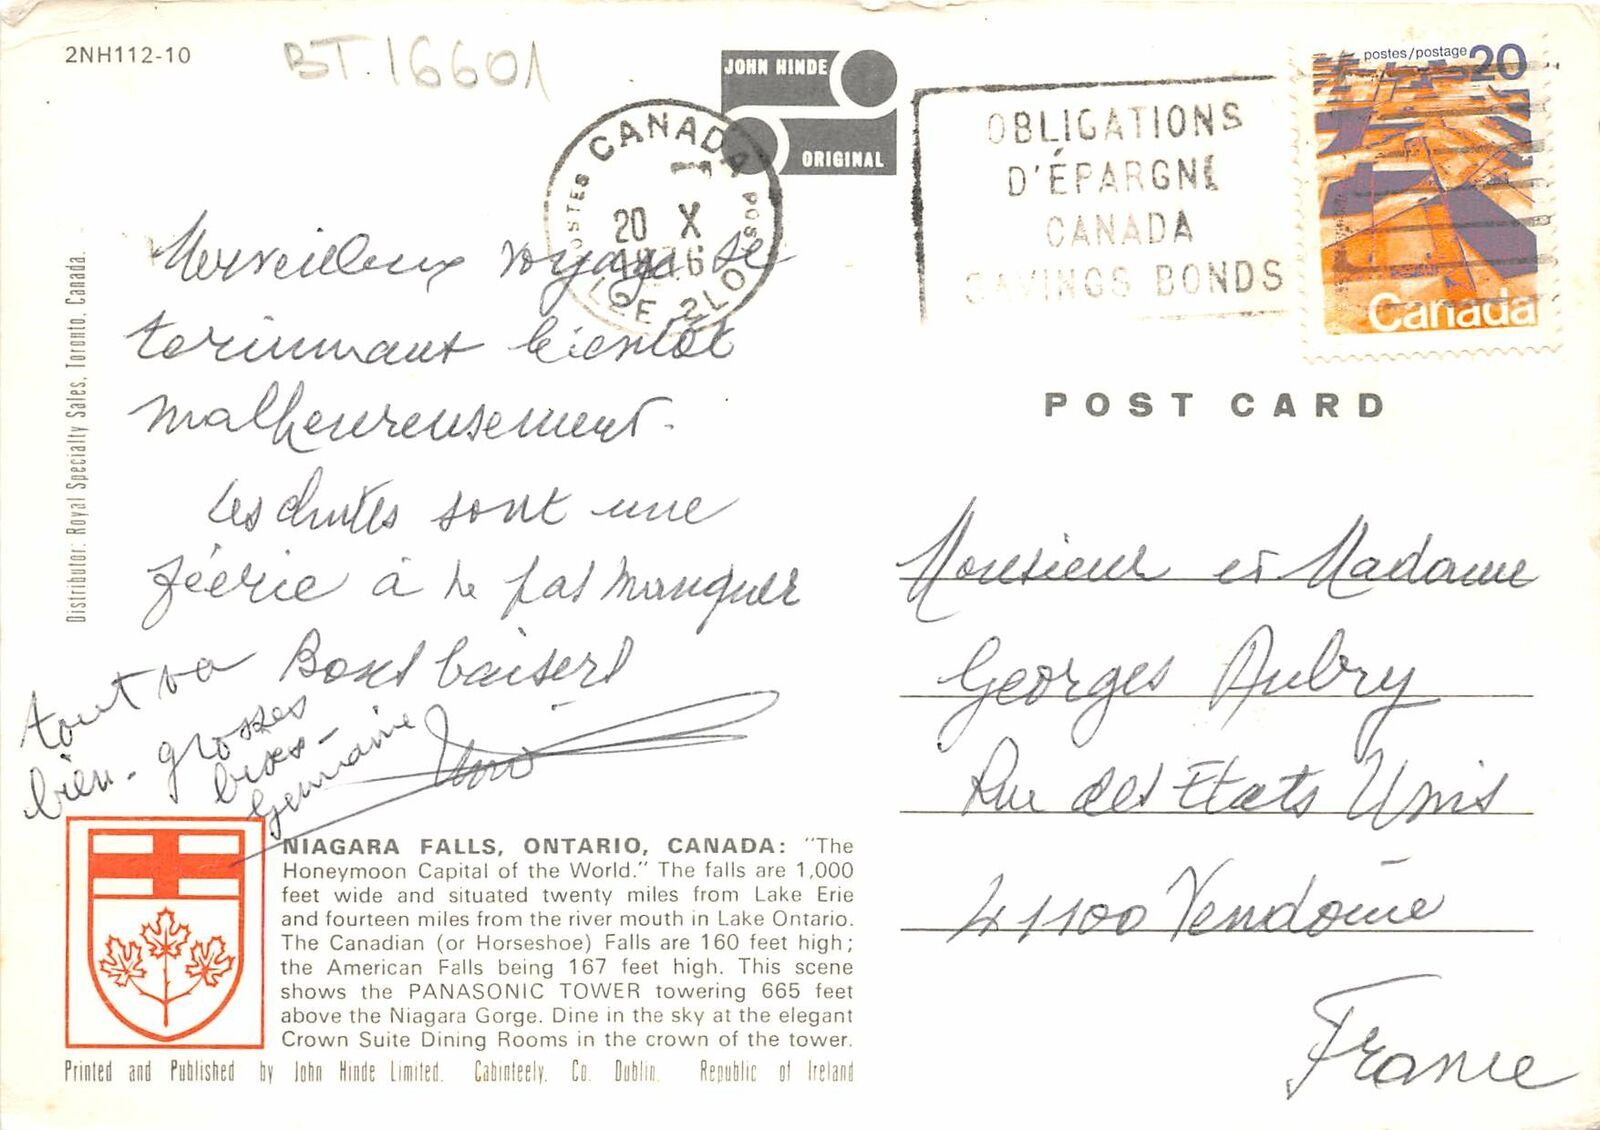 2NH112-10
BT.16601
JOHN HINDE
ORIGINAL
POSTES CANADA POS
20 X
OBLIGATIONS
D'ÉPARGNE
CANADA
SAVINGS BONDS
postes/postage 20
Canada
POST CARD
Distributor: Royal Specialty Sales, Toronto, Canada.
Merveilleux voyage se
terminant bientôt
malheureusement.
Les chutes sont une
féerie à ne pas manquer
Bons baisers
tout va
bien - grosses
bises -
Germaine
Monsieur et Madame
Georges Aubry
Rue des Etats Unis
41100 Vendôme
France
NIAGARA FALLS, ONTARIO, CANADA: "The
Honeymoon Capital of the World." The falls are 1,000
feet wide and situated twenty miles from Lake Erie
and fourteen miles from the river mouth in Lake Ontario.
The Canadian (or Horseshoe) Falls are 160 feet high;
the American Falls being 167 feet high. This scene
shows the PANASONIC TOWER towering 665 feet
above the Niagara Gorge. Dine in the sky at the elegant
Crown Suite Dining Rooms in the crown of the tower.
Printed and Published by John Hinde Limited. Cabinteely. Co. Dublin. Republic of Ireland